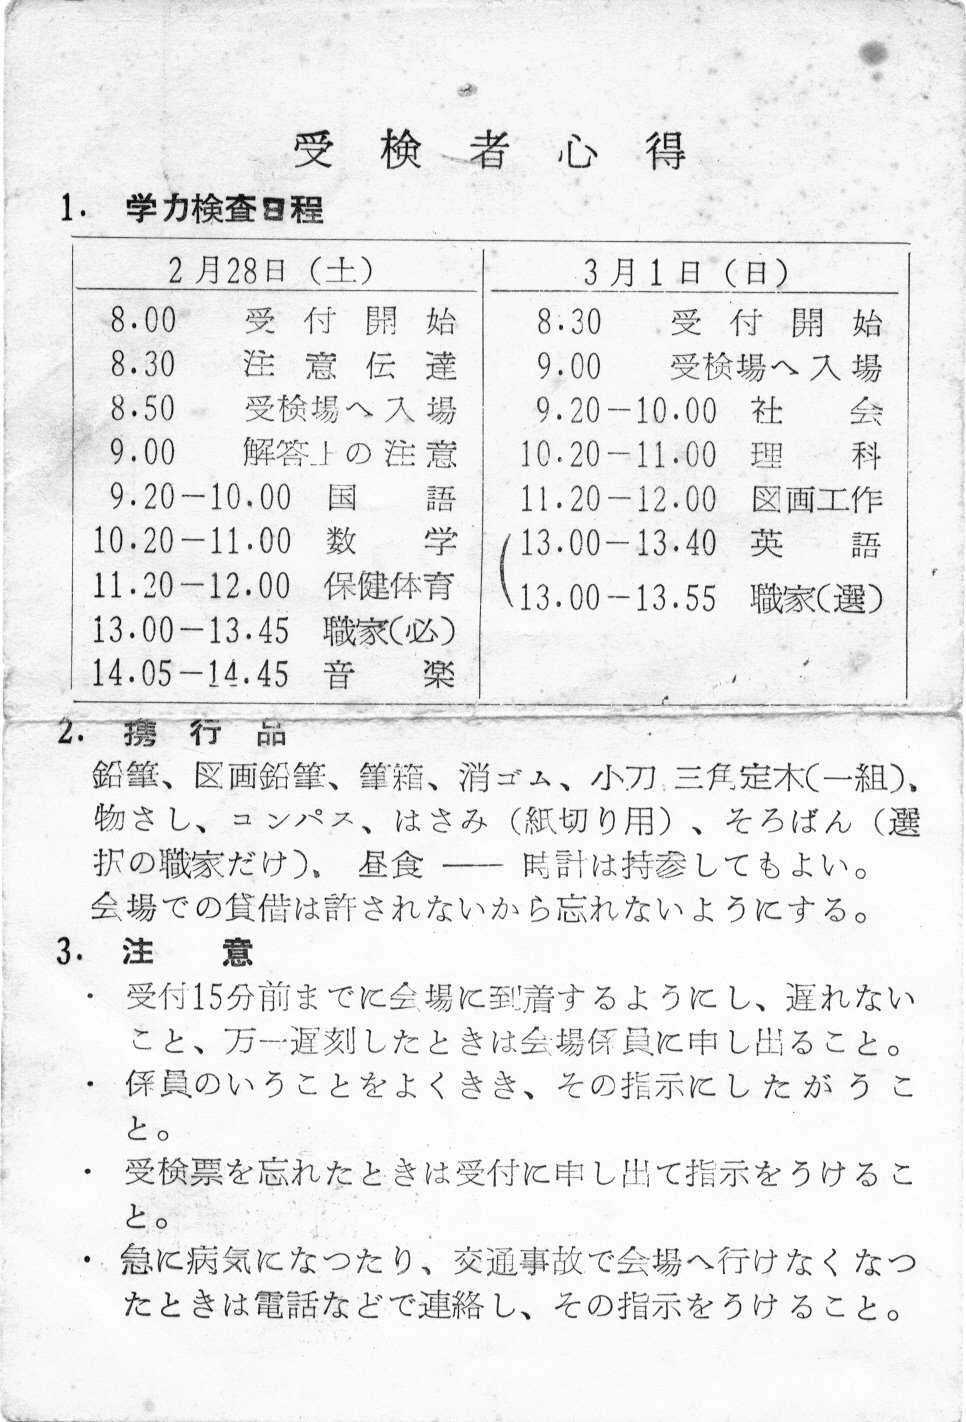 受検者心得
1. 学力検査日程
2月28日（土）
8.00 受付開始
8.30 注意伝達
8.50 受検場へ入場
9.00 解答上の注意
9.20－10.00 国語
10.20－11.00 数学
11.20－12.00 保健体育
13.00－13.45 職家(必)
14.05－14.45 音楽
3月1日（日）
8.30 受付開始
9.00 受検場へ入場
9.20－10.00 社会
10.20－11.00 理科
11.20－12.00 図画工作
(13.00－13.40 英語
13.00－13.55 職家(選)
2. 携行品
鉛筆、図画鉛筆、筆箱、消ゴム、小刀、三角定木(一組)、
物さし、コンパス、はさみ（紙切り用）、そろばん（選
択の職家だけ）、昼食 ―― 時計は持参してもよい。
会場での貸借は許されないから忘れないようにする。
3. 注意
・ 受付15分前までに会場に到着するようにし、遅れない
こと、万一遅刻したときは会場係員に申し出ること。
・ 係員のいうことをよくきき、その指示にしたがうこ
と。
・ 受検票を忘れたときは受付に申し出て指示をうけるこ
と。
・ 急に病気になつたり、交通事故で会場へ行けなくなつ
たときは電話などで連絡し、その指示をうけること。